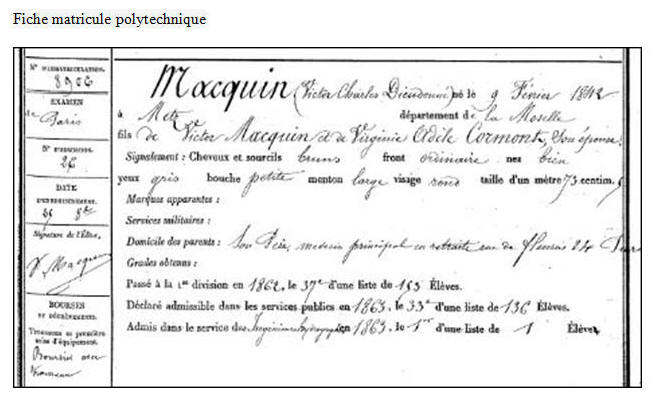 Fiche matricule polytechnique
N° D'IMMATRICULATION.
8906
EXAMEN
de Paris
N° D'ADMISSION.
26
DATE
D'ENREGISTREMENT.
Signature de l'Élève.
V. Macquin
BOURSES
ET DÉGRÈVEMENTS.
Trousseau et première
mise d'équipement.
Boursier avec
trousseau
Macquin (Victor Charles Dieudonné) né le 9 Février 1842
à Metz département de la Moselle
fils de Victor Macquin & de Virginie Adèle Cormont, son épouse.
Signalement : Cheveux et sourcils bruns front ordinaire nez bien
yeux gris bouche petite menton large visage rond taille d'un mètre 73 centim.
Marques apparentes :
Services militaires :
Domicile des parents : Son Père, médecin principal en retraite rue de fleurus 24
Grades obtenus :
Passé à la 1re division en 1862, le 37e d'une liste de 153 Élèves.
Déclaré admissible dans les services publics en 1863, le 33e d'une liste de 136 Élèves.
Admis dans le service des Ingénieurs hydrographes en 1863, le 1er d'une liste de 1 Élève